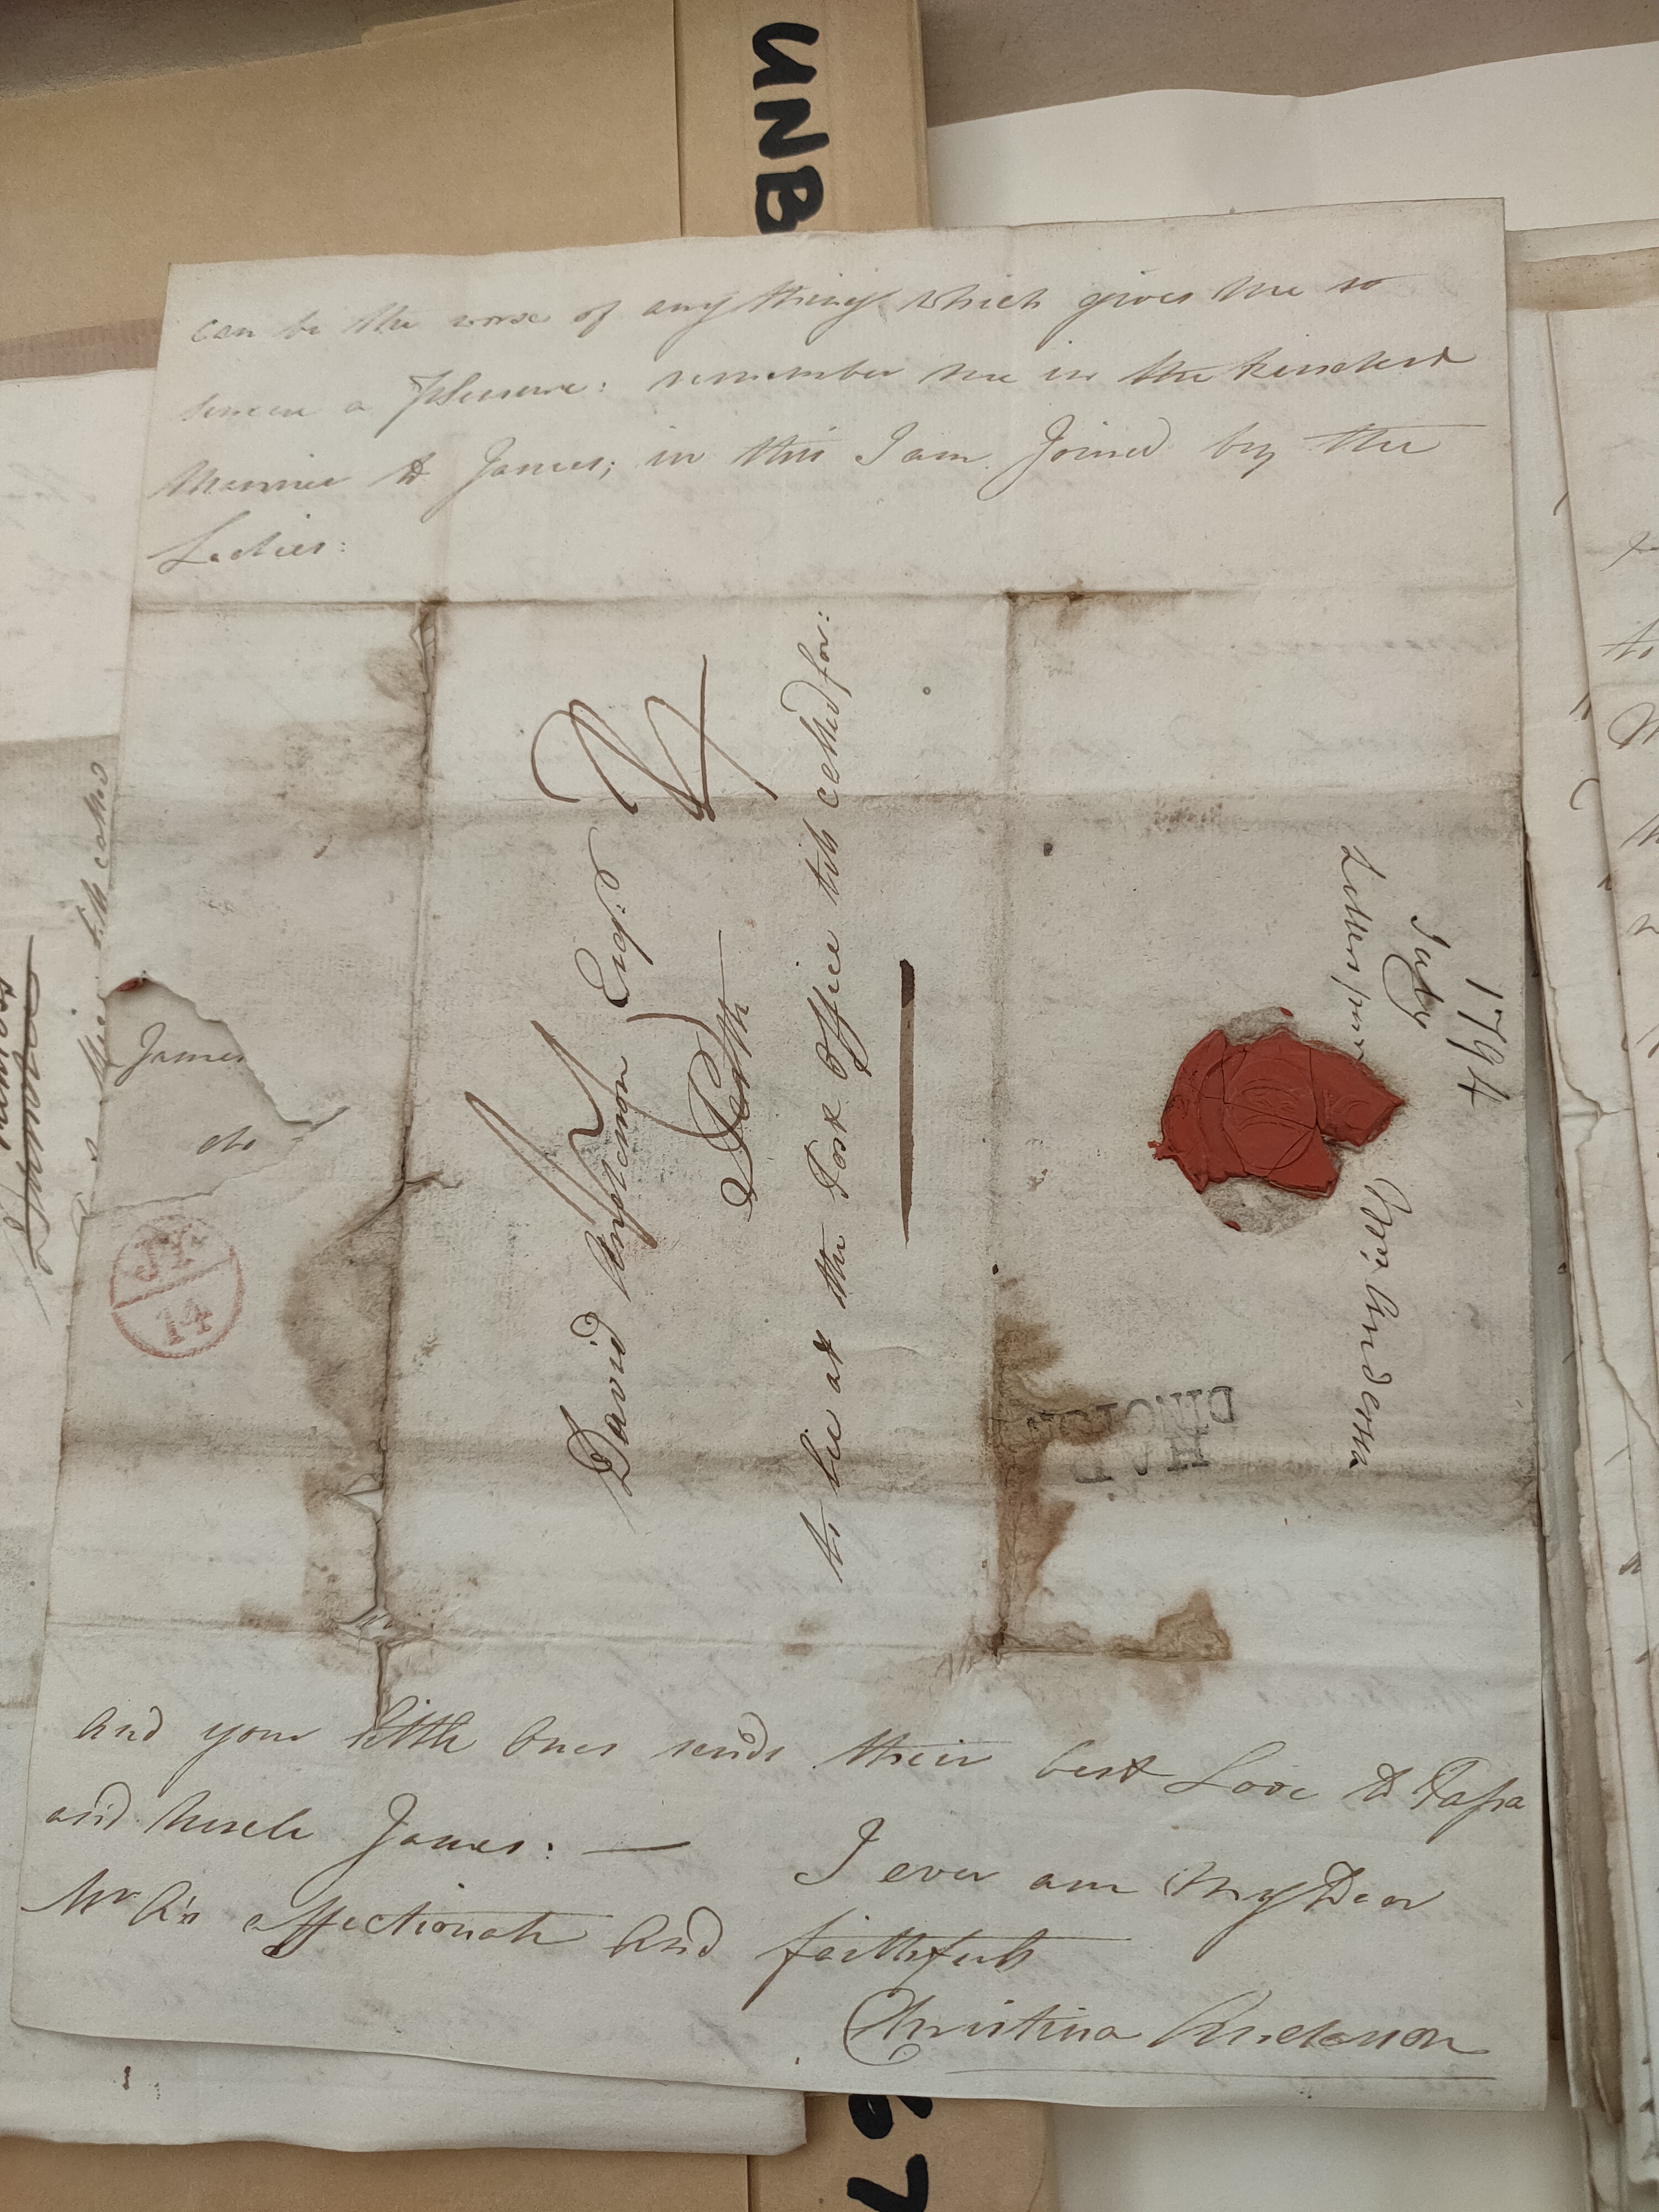 UNB
can be the worse of any thing which gives me so
sincere a Pleasure: remember me in the kindest
Manner to James; in this I am Joined by the
Ladies:
David Anderson Esqr
Perth
to lie at the Post Office till called for:
1794
July
Letters from Mrs Anderson
James
do
JY
14
HAD
DINGTON
and your little Ones sends their best Love to Papa
and Uncle James: —
I ever am My Dear
Mr A's affectionate and faithfull
Christina Anderson
till called